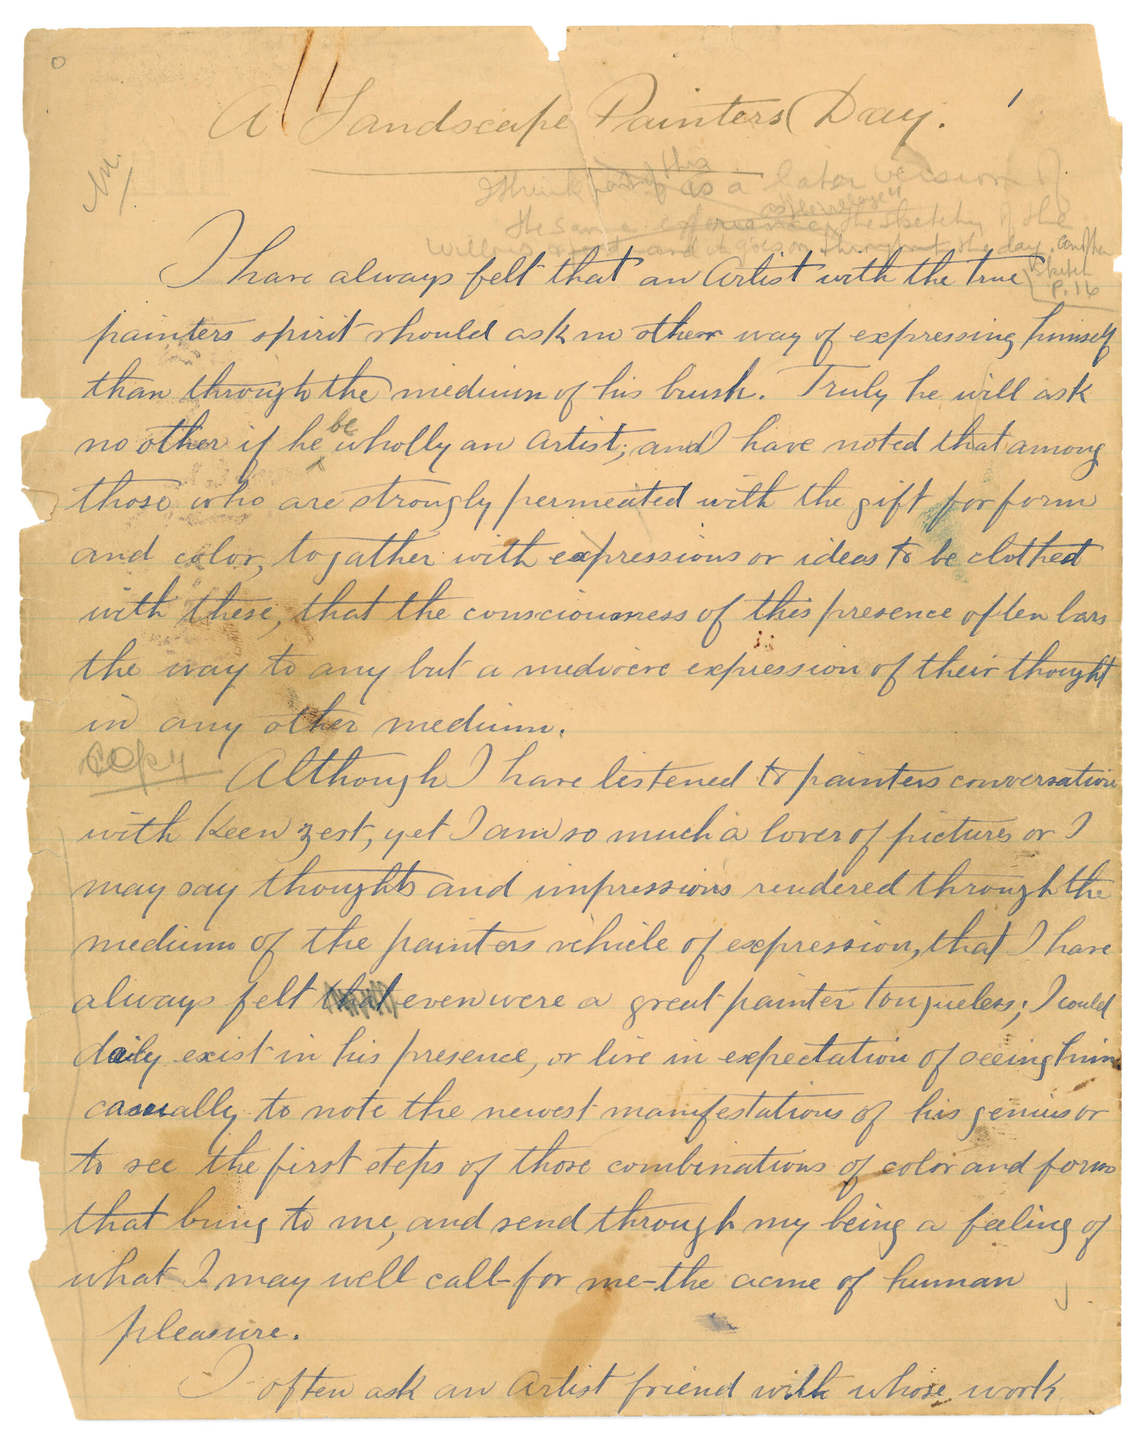 A Landscape Painters Day.
1
I think part of this is a later version of
the same the sketchy of the
and goes on throughout the day. another
sketch
p. 16
I have always felt that an Artist with the true
painters spirit should ask no other way of expressing himself
than through the medium of his brush. Truly he will ask
no other if he be wholly an Artist; and I have noted that among
those who are strongly permeated with the gift for form
and color, togather with expressions or ideas to be clothed
with these, that the consciousness of this presence often bars
the way to any but a mediocre expression of their thought
in any other medium.
copy
Although I have listened to painters conversation
with Keen zest, yet I am so much a lover of pictures or I
may say thoughts and impressions rendered through the
medium of the painters vehicle of expression, that I have
always felt that even were a great painter tongueless; I could
daily exist in his presence, or live in expectation of seeing him
casually to note the newest manifestations of his genius or
to see the first steps of those combinations of color and form
that bring to me, and send through my being a feeling of
what I may well call-for me-the acme of human
pleasure.
I often ask an Artist friend with whose work